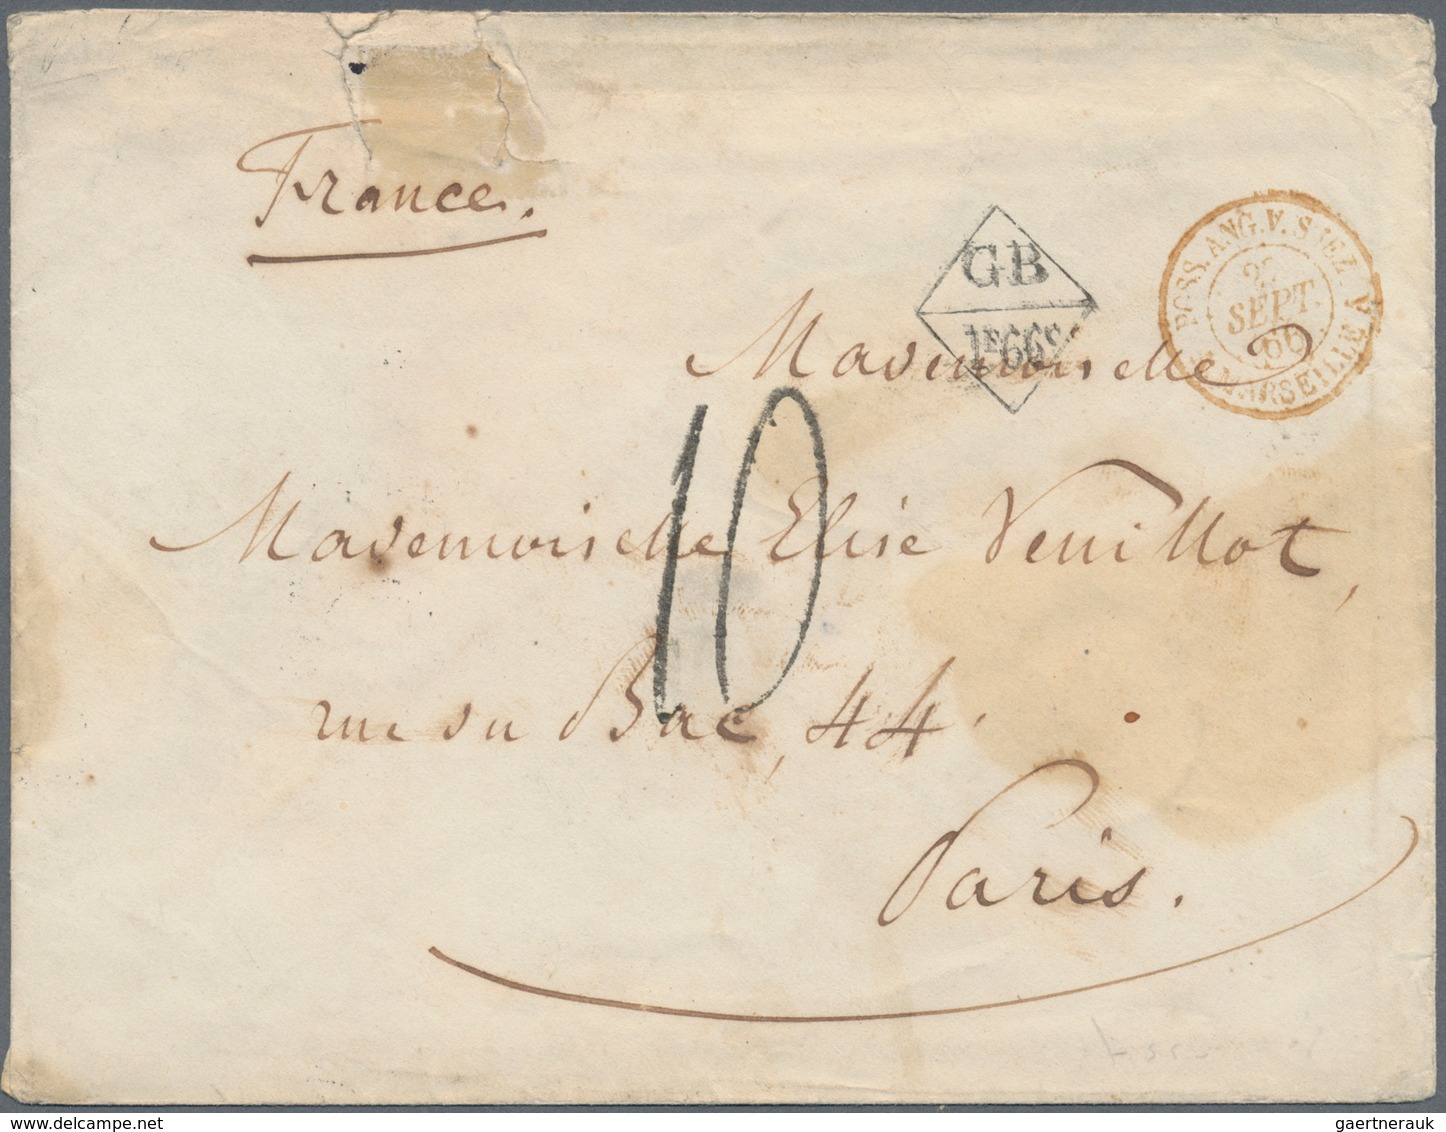 France.
GB
1F66C
POSS. ANG. V. SUEZ A
MARSEILLE
SEPT.
66
Mademoiselle
Mademoiselle Elise Veuillot,
10
rue du Bac, 44.
Paris.
gaertnerauk